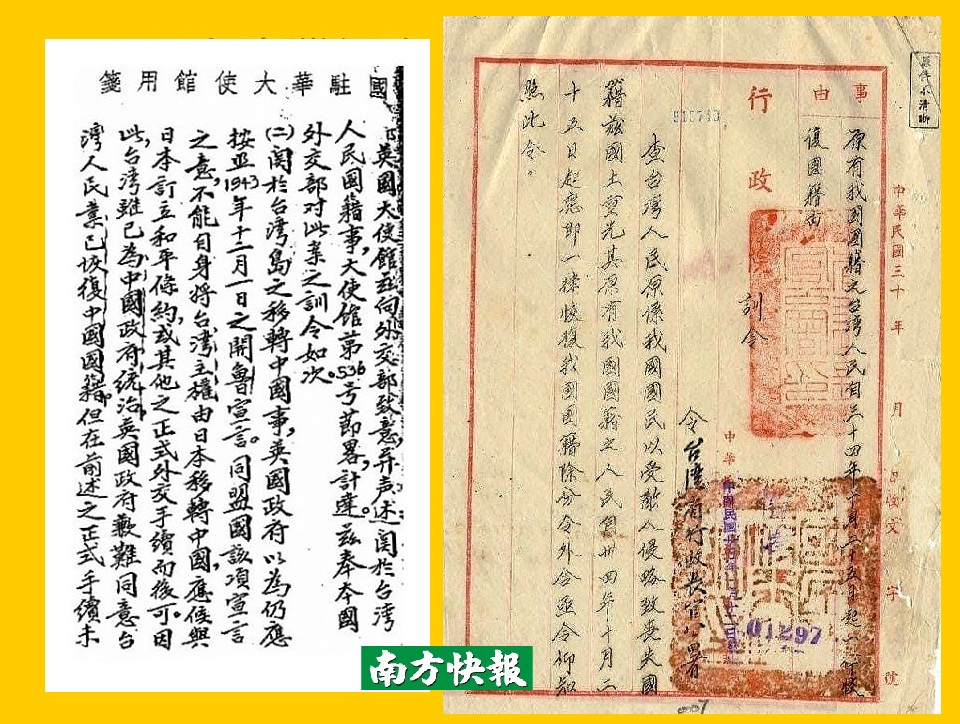 國駐華大使館用箋
英國大使館茲向外交部致意，并声述：関於台湾
人民國籍事，大使館第536号節畧，計達。茲奉本國
外交部对此案之訓令如次：
㈡関於台湾島之移轉中國事，英國政府以為仍應
按照1943年十二月一日之開魯宣言。同盟國該項宣言
之意，不能自身将台湾主權由日本移轉中國，應候與
日本訂立和平條約，或其他之正式外交手續而後可。因
此，台湾雖已為中國政府統治，英國政府歉難同意台
湾人民業已恢復中國國籍。但在前述之正式手續未
事由
原有我國國籍之台灣人民自三十四年十月二十五日起
復國籍由
中華民國三十 年 月
字 號
行政院
訓令
910740
令台灣省行政長官公署
查台灣人民原係我國國民以受敵人侵略致喪失國
籍茲國土重光其原有我國國籍之人民自卅四年十月二
十五日起應即一律恢復我國國籍除分令外合亟令仰知
照此令。
01297
南方快報